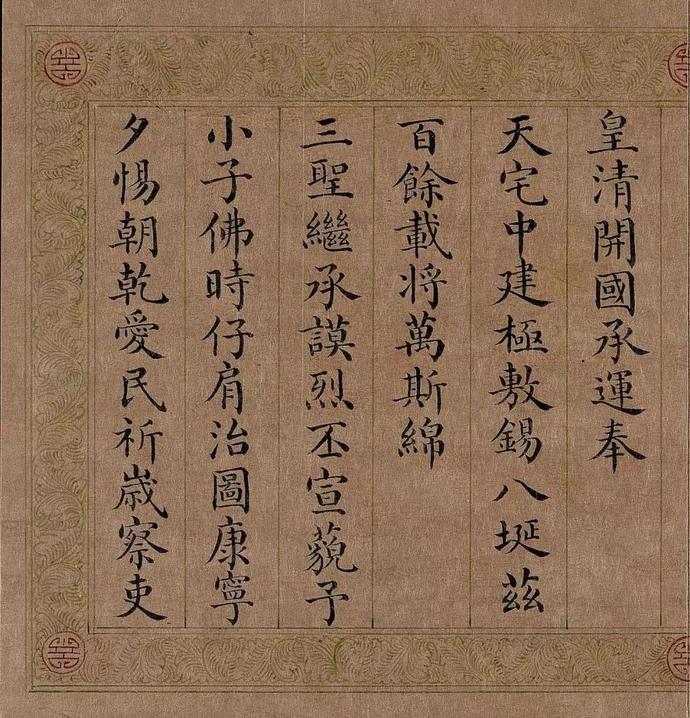 皇清開國承運奉
天宅中建極敷錫八埏茲
百餘載將萬斯綿
三聖繼承謨烈丕宣藐予
小子佛時仔肩治圖康寧
夕惕朝乾愛民祈歲察吏